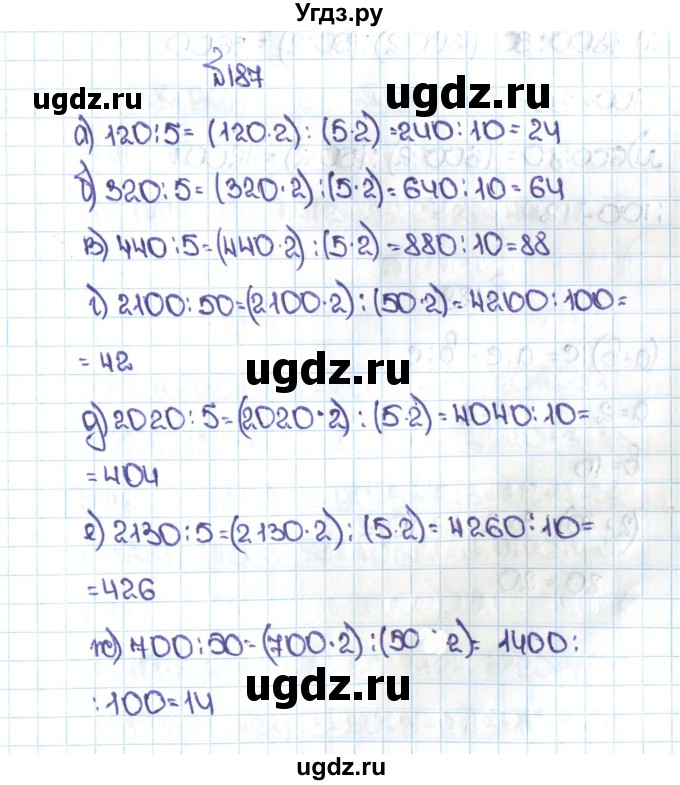 Угдз.ру
№187
ugdz.ru ugdz.ru
а) 120:5= (120·2) : (5·2) =240:10= 24
б) 320:5=(320·2):(5·2)=640:10=64
в) 440:5=(440·2):(5·2)=880:10=88
г) 2100:50=(2100·2):(50·2)=4200:100=
= 42
ugdz.ru
д) 2020:5=(2020·2):(5·2)=4040:10=
=404
е) 2130:5=(2130·2):(5·2)=4260:10=
ugdz.ru
=426
ж) 700:50=(700·2):(50·2)= 1400:
:100=14
ugdz.ru
ugdz.ru